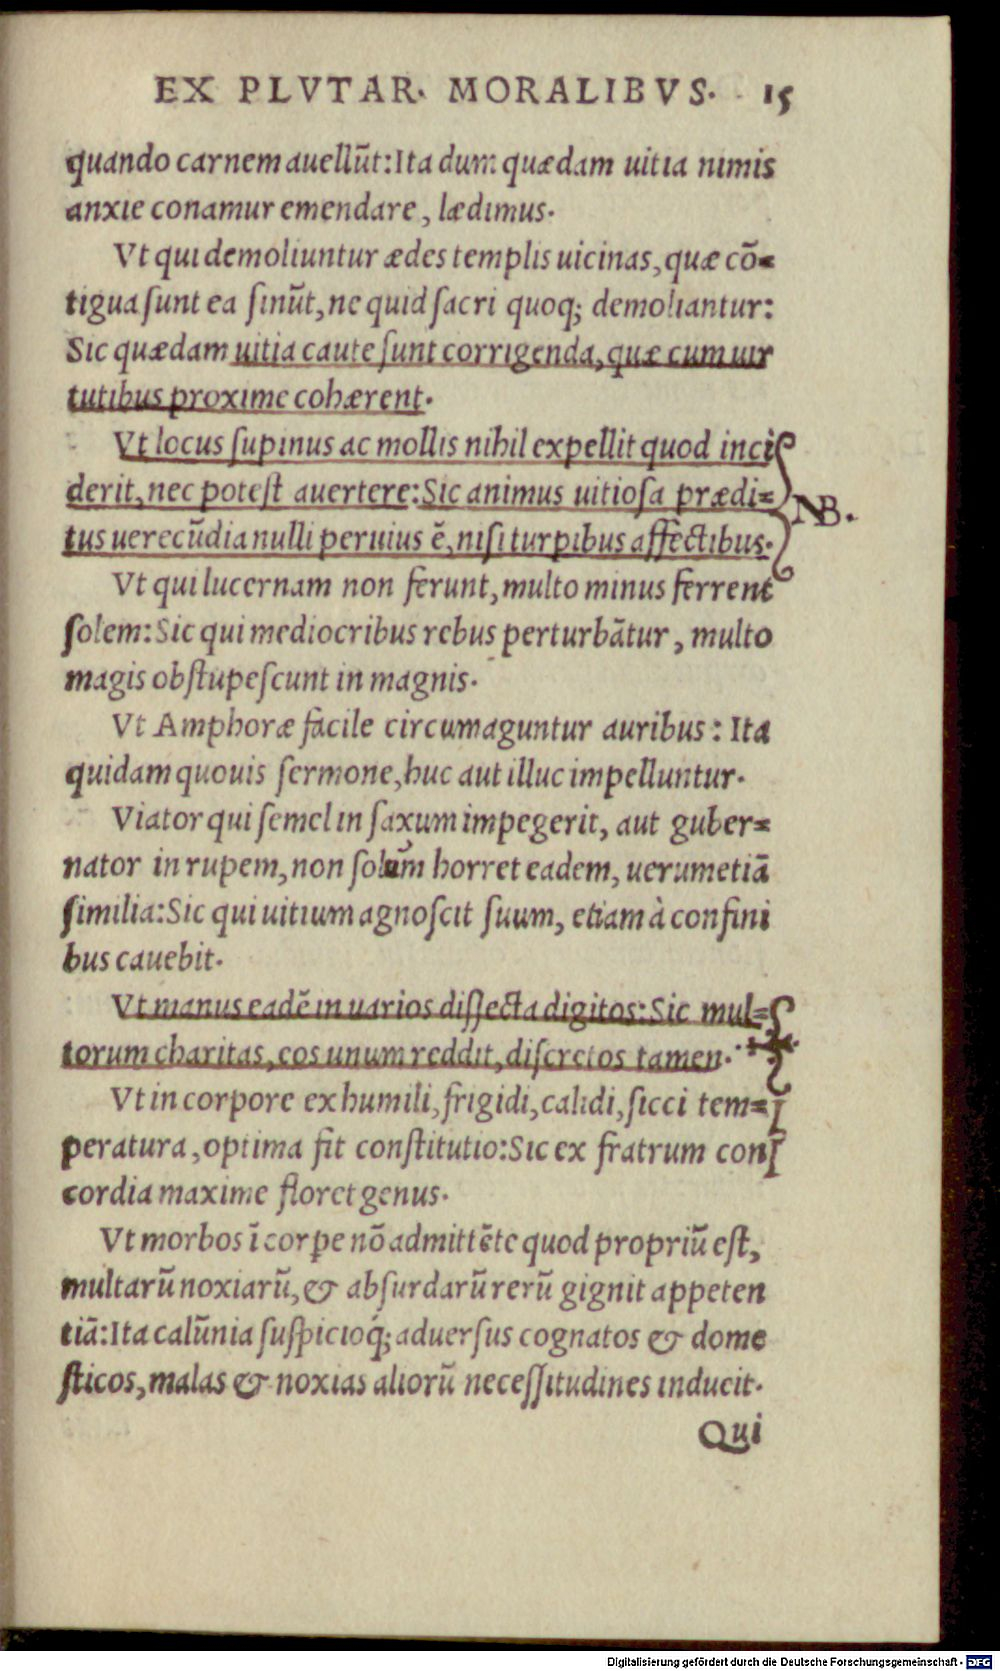 EX PLVTAR. MORALIBVS. 15
quando carnem auellũt: Ita dum quædam uitia nimis
anxie conamur emendare, lædimus.
Vt qui demoliuntur ædes templis uicinas, quæ cõ=
tigua sunt ea sinũt, ne quid sacri quoq; demoliantur:
Sic quædam uitia caute sunt corrigenda, quæ cum uir
tutibus proxime cohærent.
Vt locus supinus ac mollis nihil expellit quod inci
derit, nec potest auertere: Sic animus uitiosa prædi=
NB.
tus uerecũdia nulli peruius ẽ, nisi turpibus affectibus.
Vt qui lucernam non ferunt, multo minus ferrent
solem: Sic qui mediocribus rebus perturbãtur, multo
magis obstupescunt in magnis.
Vt Amphoræ facile circumaguntur auribus: Ita
quidam quouis sermone, huc aut illuc impelluntur.
Viator qui semel in saxum impegerit, aut guber=
nator in rupem, non solum horret eadem, uerumetiã
similia: Sic qui uitium agnoscit suum, etiam à confini
bus cauebit.
Vt manus eadẽ in uarios dissecta digitos: Sic mul=
torum charitas, eos unum reddit, discretos tamen.
Vt in corpore ex humili, frigidi, calidi, sicci tem=
peratura, optima fit constitutio: Sic ex fratrum con
cordia maxime floret genus.
Vt morbos ĩ corꝑe nõ admittẽte quod propriũ est,
multarũ noxiarũ, & absurdarũ rerũ gignit appeten
tiã: Ita calũnia suspicioq́; aduersus cognatos & dome
sticos, malas & noxias aliorũ necessitudines inducit.
Qui
Digitalisierung gefördert durch die Deutsche Forschungsgemeinschaft - DFG